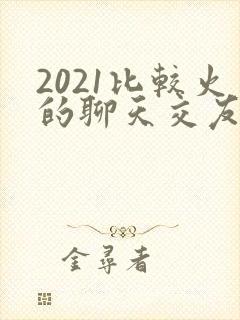 2021比较火
的聊天交友
金寻者